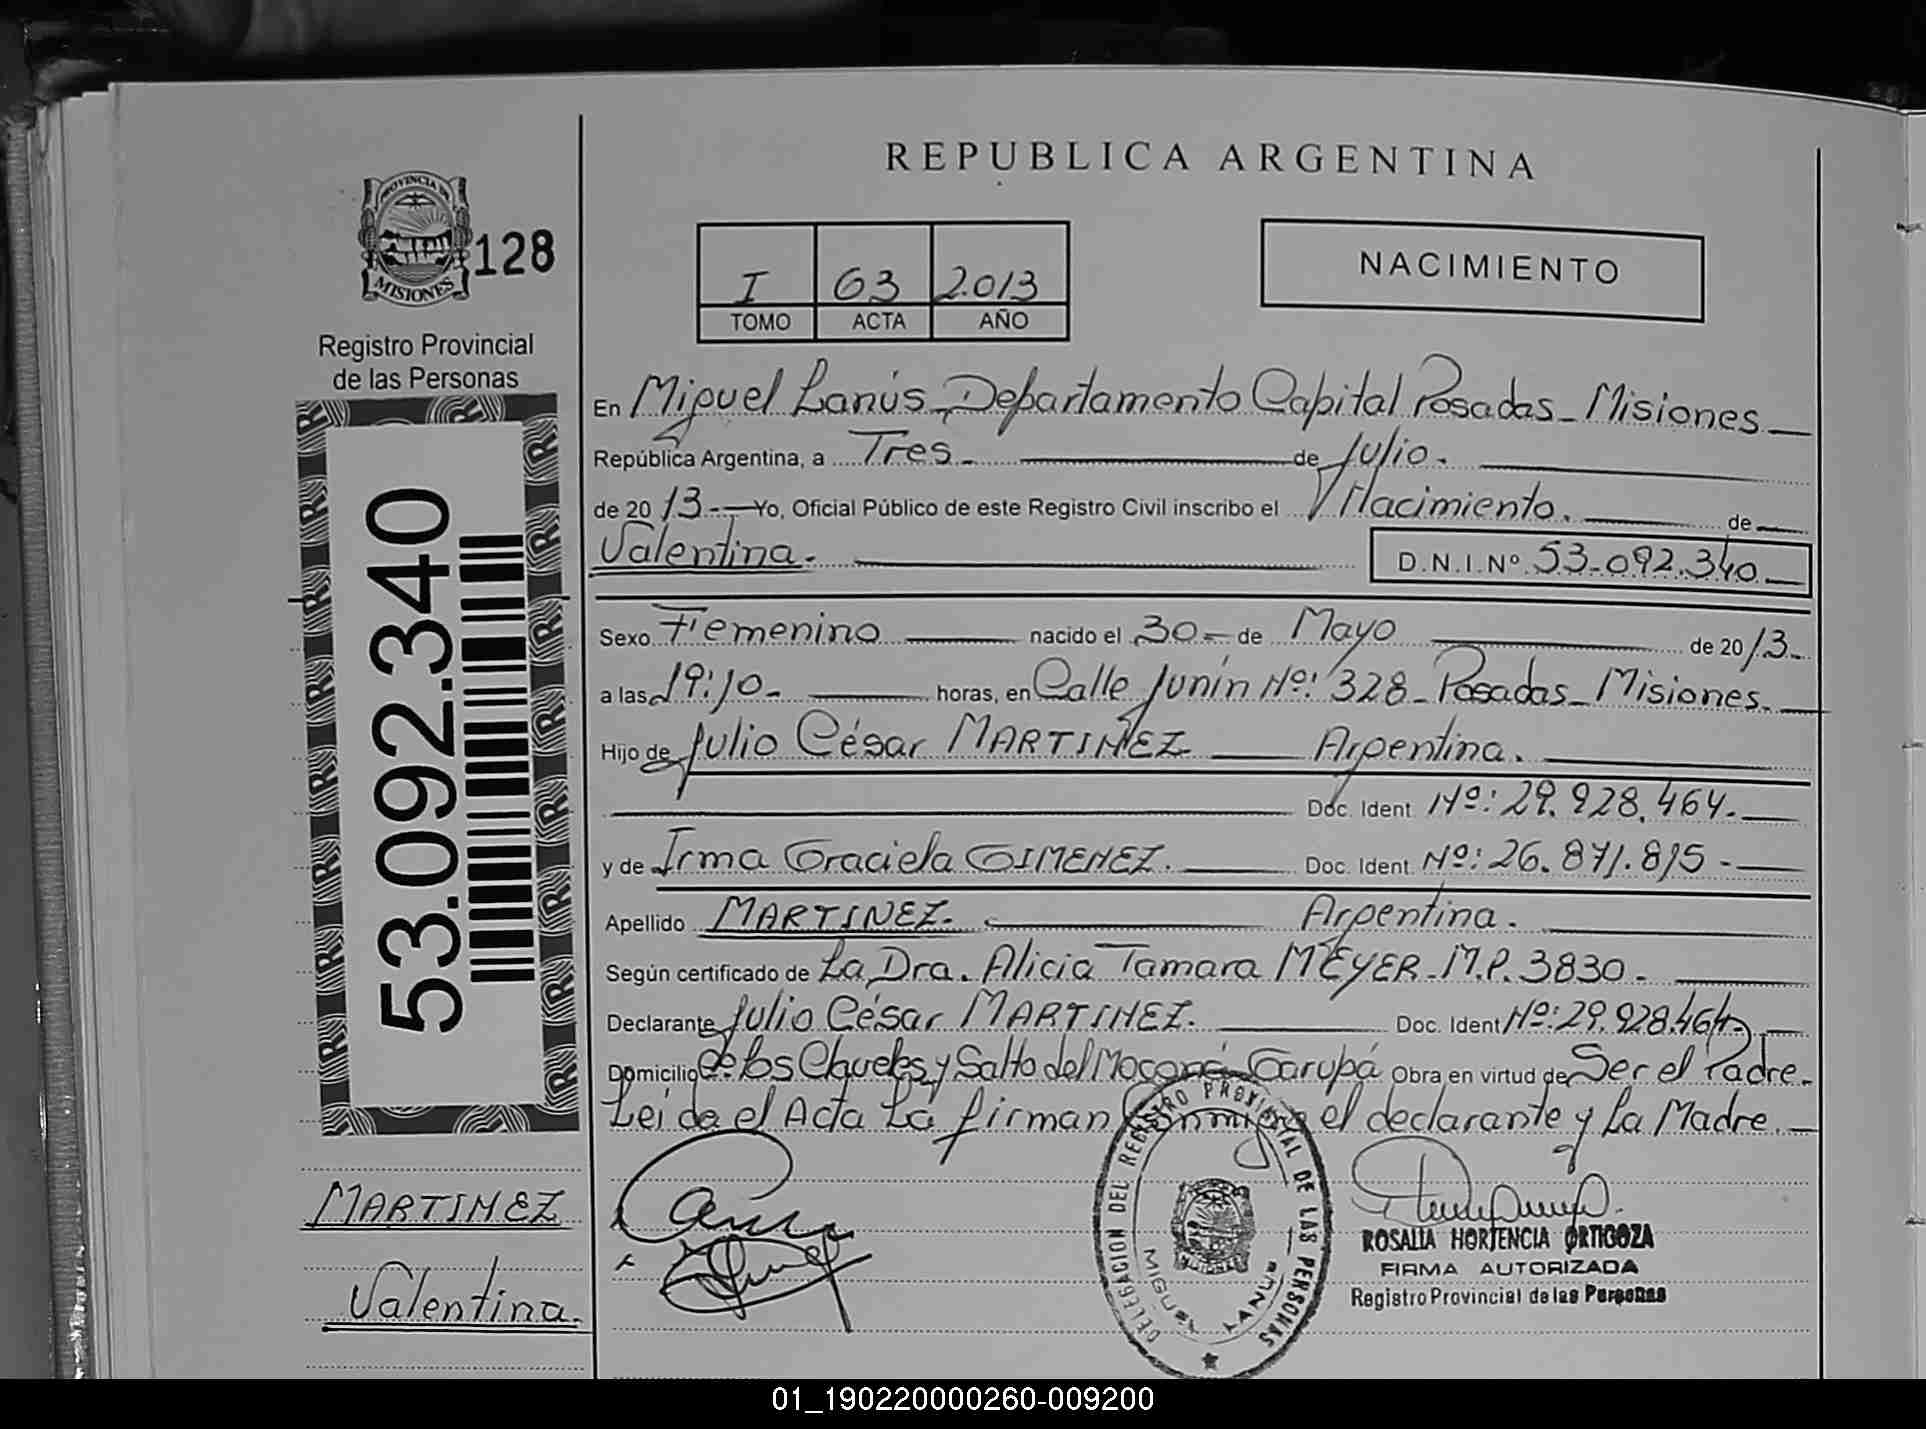 REPUBLICA ARGENTINA
PROVINCIA DE
MISIONES
128
Registro Provincial
de las Personas
53.092.340
I 63 2.013
TOMO ACTA AÑO
NACIMIENTO
En Miguel Lanús Departamento Capital Posadas - Misiones
República Argentina, a Tres. de Julio.
de 2013 Yo, Oficial Público de este Registro Civil inscribo el Nacimiento. de
Valentina. D.N.I.Nº 53-092.340
Sexo Femenino nacido el 30 de Mayo de 2013.
a las 19:10. horas, en Calle Junín Nº: 328 - Posadas - Misiones.
Hijo de Julio César MARTINEZ Argentina.
Doc. Ident. Nº: 29.928.464.
y de Irma Graciela GIMENEZ. Doc. Ident. Nº: 26.871.815 -
Apellido MARTINEZ. Argentina.
Según certificado de La Dra. Alicia Tamara MEYER - M.P. 3830.
Declarante Julio César MARTINEZ. Doc. Ident Nº: 29.928.464
Domicilio de los Claveles y Salto del Moconá Garupá Obra en virtud de Ser el Padre.
Leida el Acta La firman Conmigo el declarante y La Madre.
MARTINEZ
Valentina.
DELEGACION DEL REGISTRO PROVINCIAL DE LAS PERSONAS
MIGUEL LANUS
ROSALIA HORTENCIA ORTIGOZA
FIRMA AUTORIZADA
Registro Provincial de las Personas
01_190220000260-009200